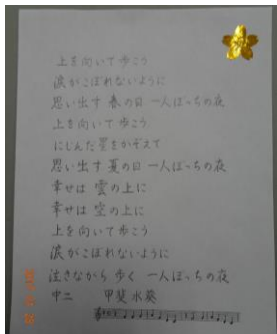 上を向いて歩こう
涙がこぼれないように
思い出す 春の日 一人ぼっちの夜
上を向いて歩こう
にじんだ星をかぞえて
思い出す 夏の日 一人ぼっちの夜
幸せは 雲の上に
幸せは 空の上に
上を向いて歩こう
涙がこぼれないように
泣きながら 歩く 一人ぼっちの夜
中二 甲斐水葵